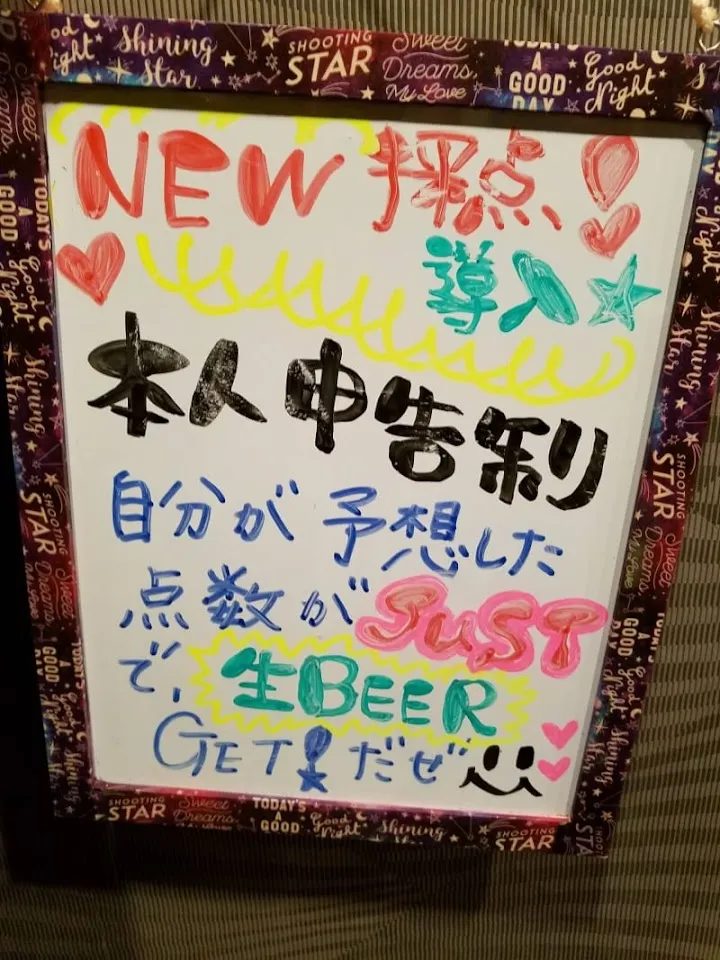 Good Night
Shining Star
SHOOTING STAR
Sweet Dreams My Love
TODAY'S A GOOD DAY
Good Night
NEW 採点!
導入☆
本人申告制
自分が予想した
点数がJUST
で、生BEER
GET!だぜ
SHOOTING STAR
Sweet Dreams
TODAY'S A GOOD
Good Night
Shining
SHOOTING STAR